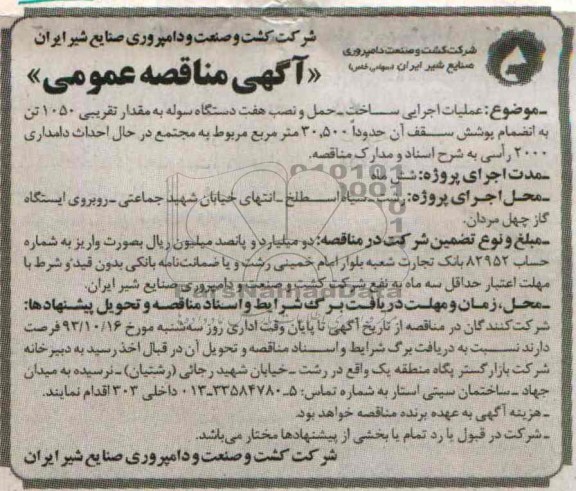 شرکت کشت و صنعت و دامپروری صنایع شیر ایران
شرکت کشت و صنعت دامپروری
صنایع شیر ایران (سهامی خاص)
«آگهی مناقصه عمومی»
ـ موضوع: عملیات اجرایی ساخت ـ حمل و نصب هفت دستگاه سوله به مقدار تقریبی ۱۰۵۰ تن
به انضمام پوشش سقف آن حدوداً ۳۰,۵۰۰ متر مربع مربوط به مجتمع در حال احداث دامداری
۲۰۰۰ رأسی به شرح اسناد و مدارک مناقصه.
ـ مدت اجرای پروژه: شش ماه
ـ محل اجرای پروژه: رشت ـ سیاه اسطلخ ـ انتهای خیابان شهید جماعتی ـ روبروی ایستگاه
گاز چهل مردان.
ـ مبلغ و نوع تضمین شرکت در مناقصه: دو میلیارد و پانصد میلیون ریال بصورت واریز به شماره
حساب ۸۲۹۵۲ بانک تجارت شعبه بلوار امام خمینی رشت و یا ضمانت‌نامه بانکی بدون قید و شرط با
مهلت اعتبار حداقل سه ماه و به نفع شرکت کشت و صنعت و دامپروری صنایع شیر ایران.
ـ محل، زمان و مهلت دریافت برگ شرایط و اسناد مناقصه و تحویل پیشنهادها:
شرکت‌کنندگان در مناقصه از تاریخ آگهی تا پایان وقت اداری روز سه‌شنبه مورخ ۹۳/۱۰/۱۶ فرصت
دارند نسبت به دریافت برگ شرایط و اسناد مناقصه و تحویل آن در قبال اخذ رسید به دبیرخانه
شرکت بازارگستر پگاه منطقه یک واقع در رشت ـ خیابان شهید رجائی (رشتیان) ـ نرسیده به میدان
جهاد ـ ساختمان سیتی استار به شماره تماس: ۵ـ۳۳۵۸۴۷۸۰ـ۰۱۳ داخلی ۳۰۳ اقدام نمایند.
ـ هزینه آگهی به عهده برنده مناقصه خواهد بود.
ـ شرکت در قبول یا رد تمام یا بخشی از پیشنهادها مختار می‌باشد.
شرکت کشت و صنعت و دامپروری صنایع شیر ایران